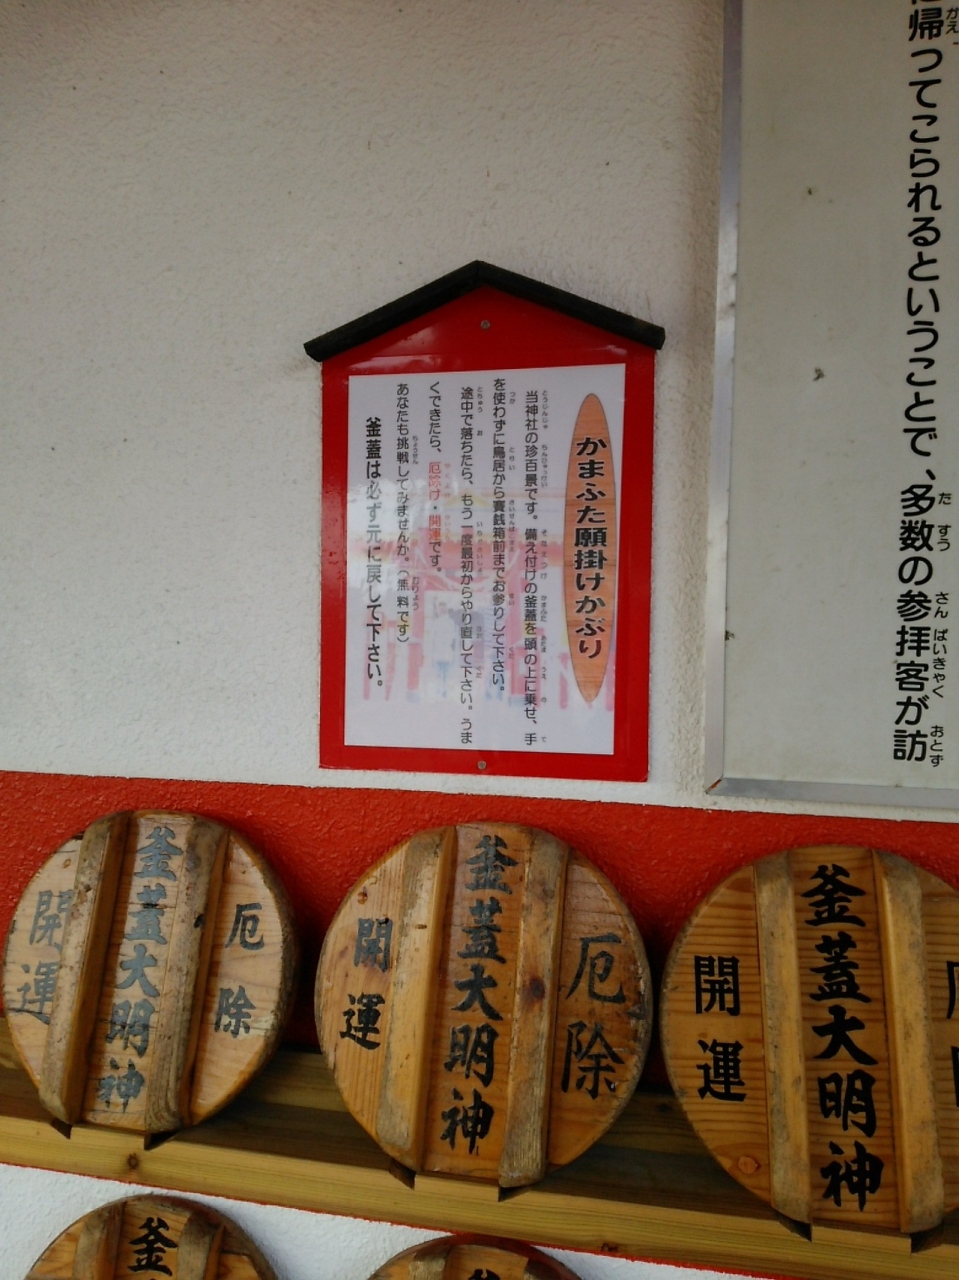 に帰ってこられるということで、多数の参拝客が訪
かまふた願掛けかぶり
当神社の珍百景です。備え付けの釜蓋を頭の上に乗せ、手
を使わずに鳥居から賽銭箱前までお参りして下さい。
途中で落ちたら、もう一度最初からやり直して下さい。うま
くできたら、厄除け・開運です。
あなたも挑戦してみませんか。(無料です)
釜蓋は必ず元に戻して下さい。
厄除
釜蓋大明神
開運
厄除
釜蓋大明神
開運
釜蓋大明神
開運
釜